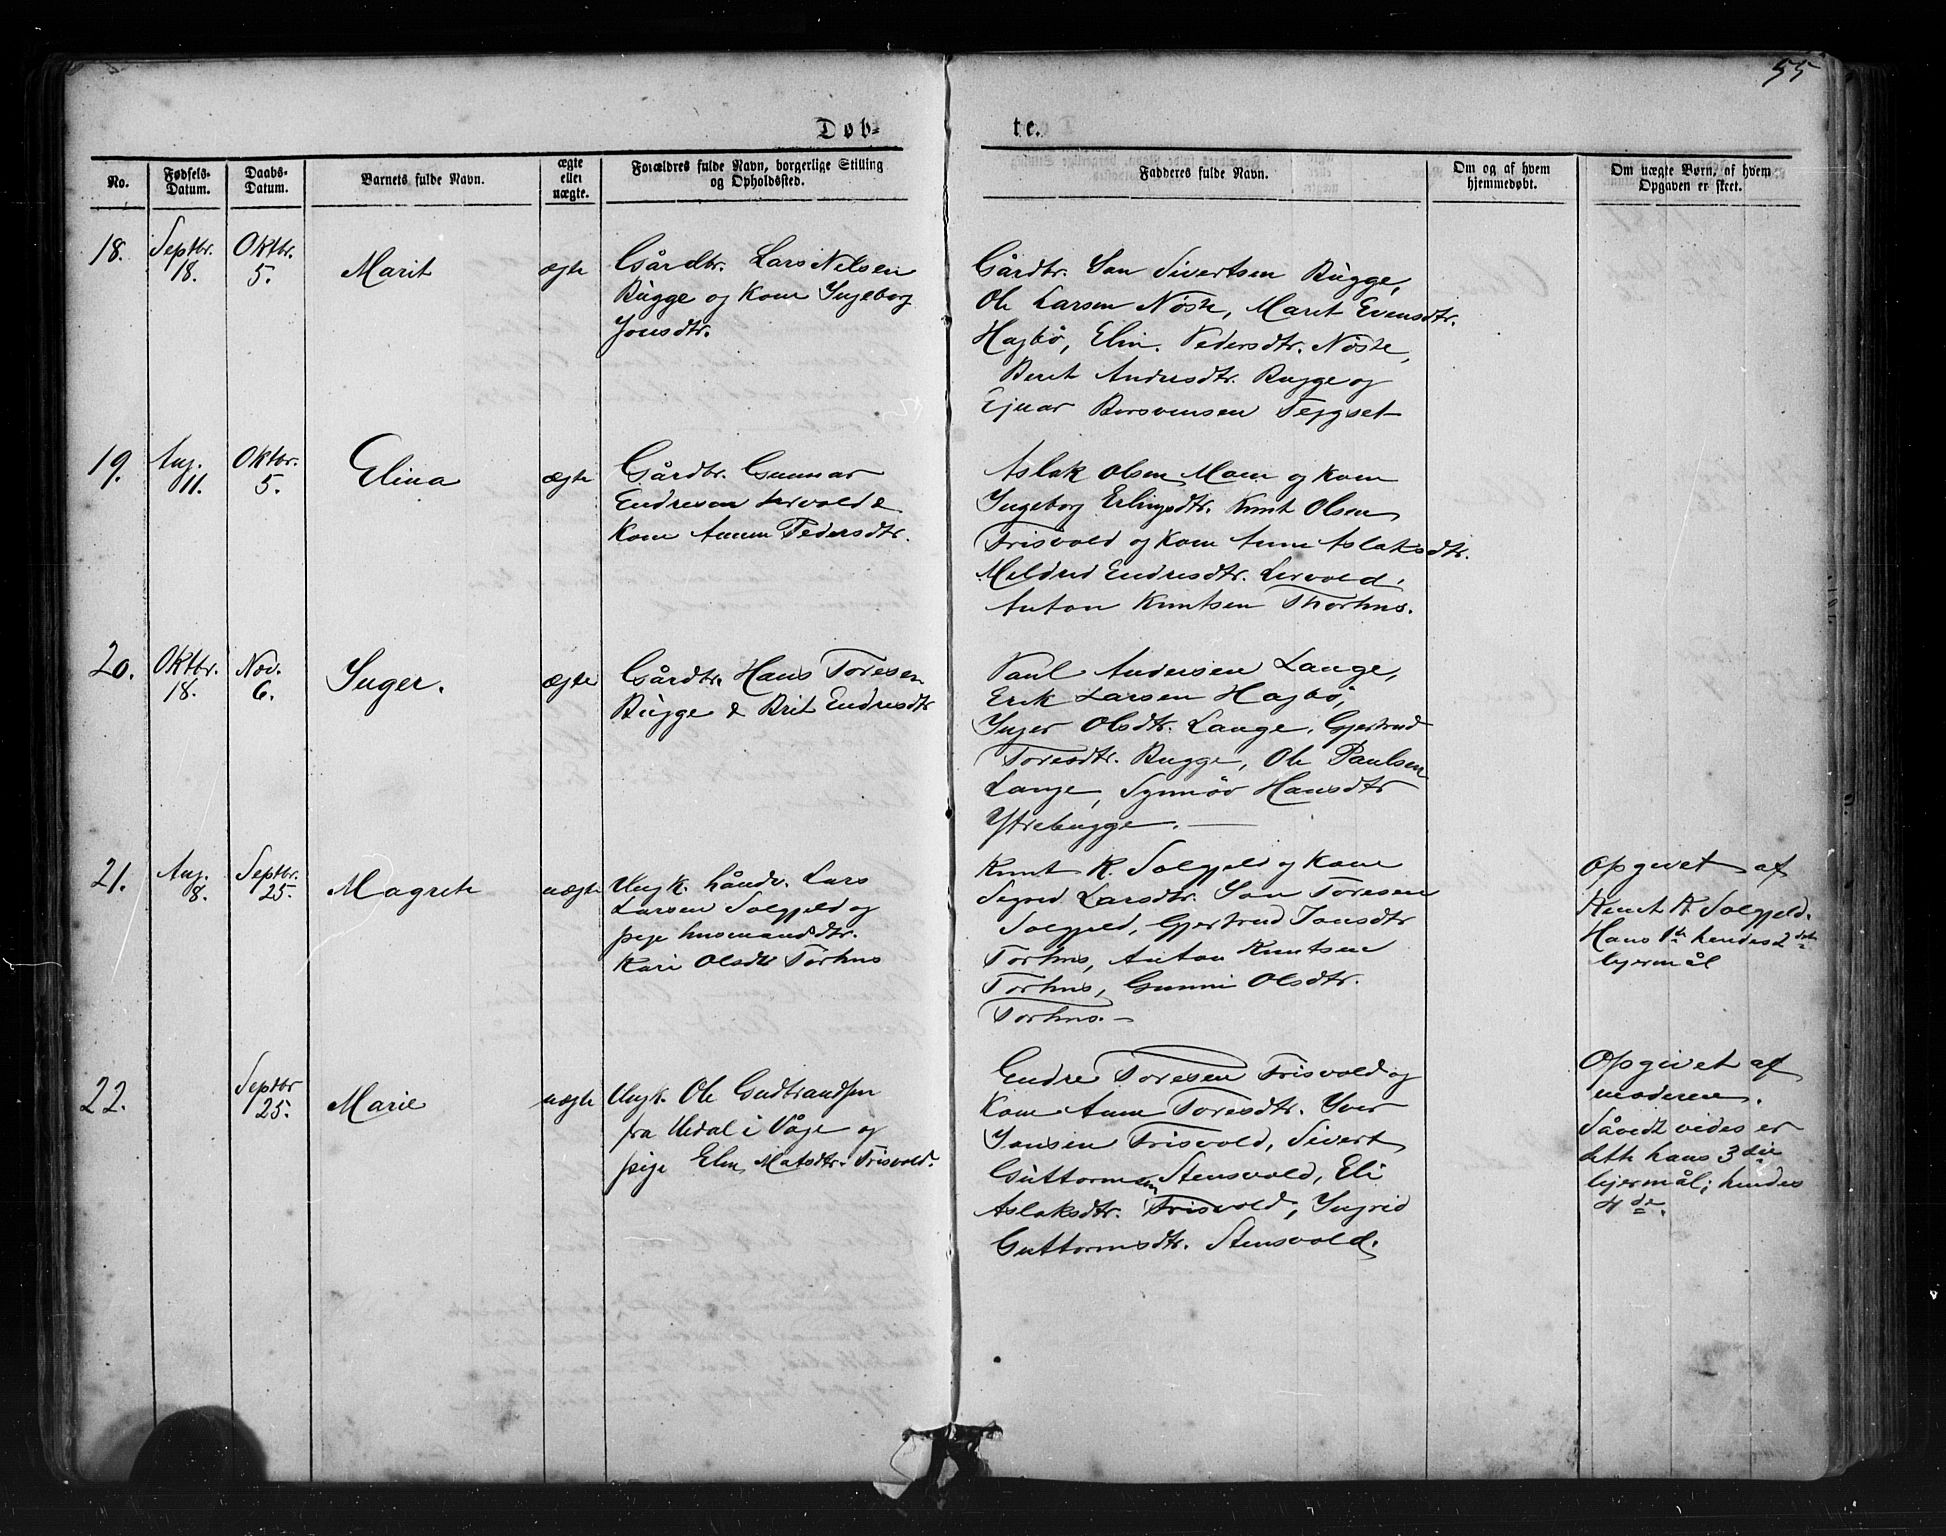 55
Døb=
te.
No.
Fødsels-
Datum.
Daabs-
Datum.
Barnets fulde Navn.
ægte
eller
uægte.
Forældres fulde Navn, borgerlige Stilling
og Opholdssted.
Fadderes fulde Navn.
Om og af hvem
hjemmedøbt.
Om uægte Børn, af hvem
Opgaven er skeet.
18.
Septbr.
18.
Oktbr.
5.
Marit
ægte
Gårdbr. Lars Nilsen
Bugge og Kone Ingeborg
Jonsdtr.
Gårdbr. Jon Sivertsen Bugge,
Ole Larsen Nøste, Marit Evensdtr.
Hagbø, Elin Pedersdtr. Nøste,
Beret Andresdtr. Bugge og
Ejnar
19.
Aug.
11.
Oktbr.
5.
Elina
ægte
Gårdbr. Gunnar
Endresen Lervold &
Kone Anne Pedersdtr.
Aslak Olsen Moen og Kone
Ingeborg Erlingsdtr. Knut Olsen
Frisvold og Kone Anne Aslaksdtr.
Mildrid Endresdtr. Lervold,
Anton Knutsen Thorhus.
20.
Oktbr.
18.
Nov.
6.
Inger.
ægte
Gårdbr. Hans Toresen
Bugge & Brit Endresdtr
Paul Andersen Lange,
Erik Larsen Hagbø,
Inger Olsdtr. Lange, Gjertrud
Toresdtr. Bugge, Ole Paulsen
Lange, Synnøv Hansdtr
Ytrebugge.
21.
Aug.
8.
Septbr.
25.
Magrete
uægte
Ungk. håndv. Lars
Larsen Solgjeld og
pige husmandsdtr.
Kari Olsdtr Torhus
Knut K. Solgjeld og Kone
Sigrid Larsdtr. Jon Toresen
Solgjeld, Gjertrud Jonsdtr
Torhus, Anton Knutsen
Torhus, Gunni Olsdtr.
Torhus.
Opgivet af
Knut K Solgjeld.
Hans 1te hendes 2det
lejermål
22.
Septbr
25.
Marie
uægte
Ungk. Ole Gudbrandsen
fra Uldal i Våge og
pige Elen Matsdtr. Frisvold.
Endre Toresen Frisvold og
Kone Anne Toresdtr. Iver
Jonsen Frisvold, Sivert
Guttormsen Stensvold, Eli
Aslaksdtr. Frisvold, Ingrid
Guttormsdtr. Stensvold.
Opgivet af
moderen.
Såvidt vides er
dette hans 3die
lejermål; hendes
4de.